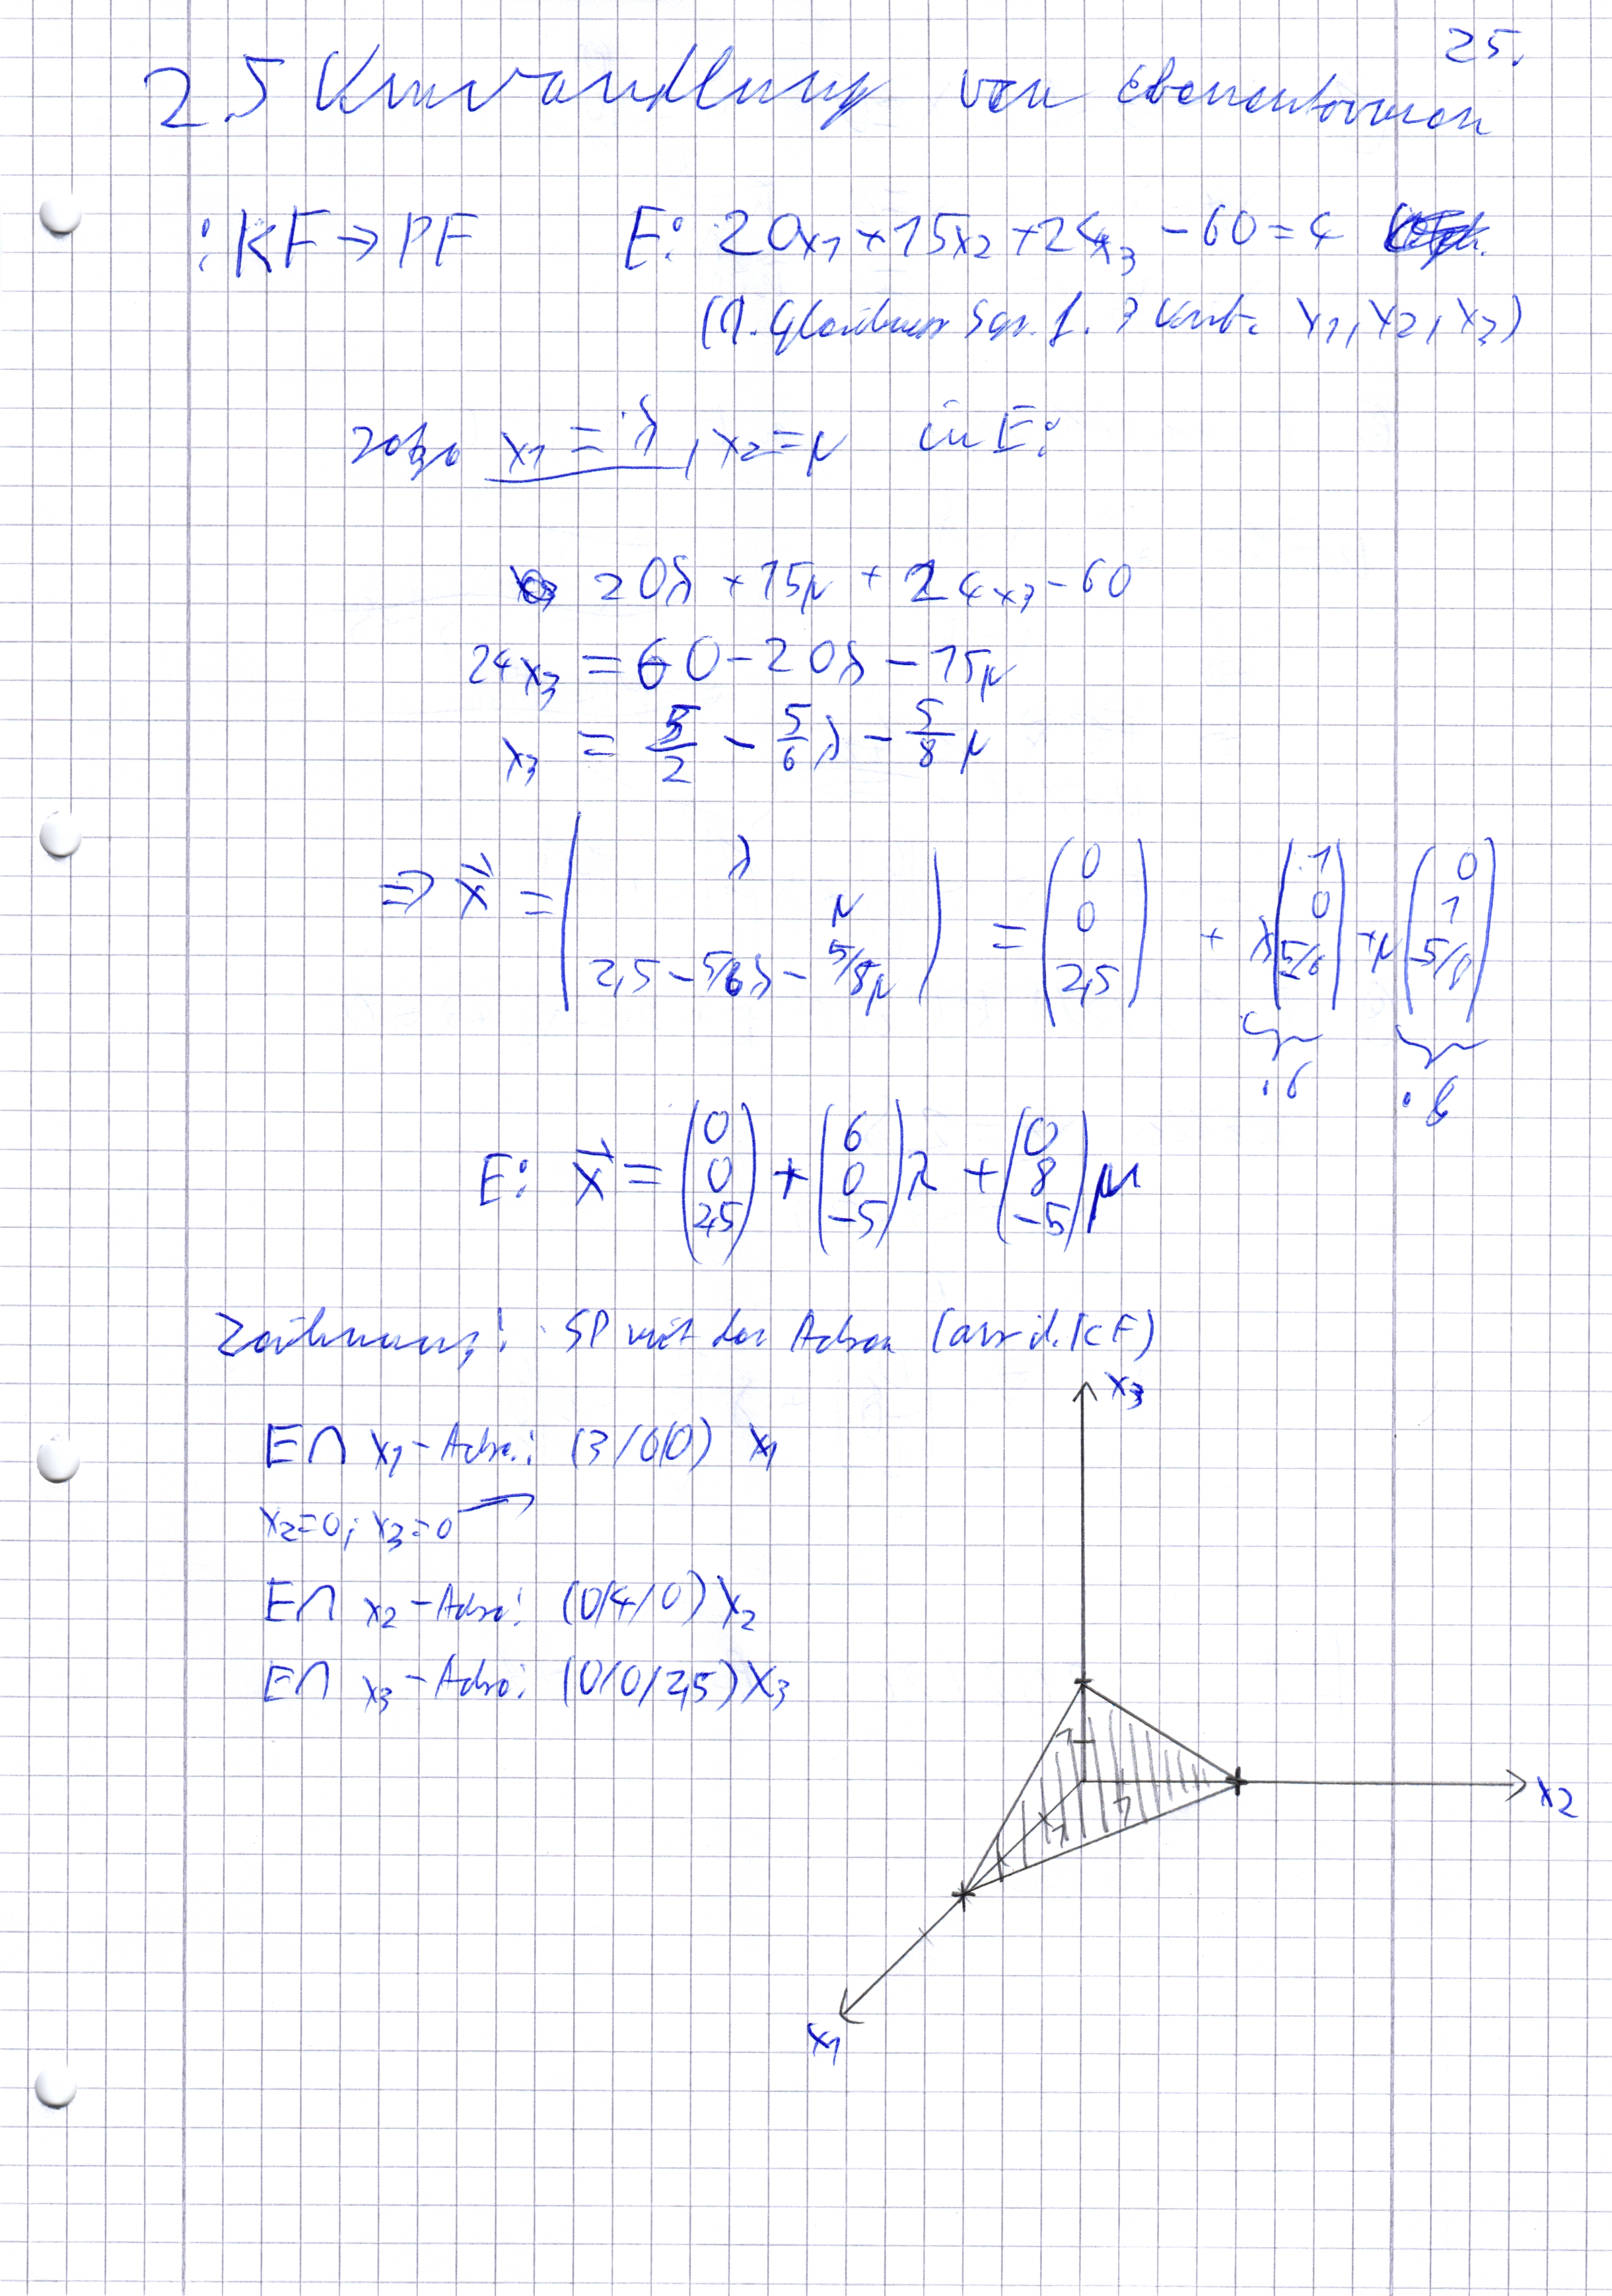 25.
2.5 Umwandlung von Ebenenformen
: KF → PF E: 20x₁ + 15x₂ + 24x₃ - 60 = 4
(1. Gleichung f. 3 Unb. x₁, x₂, x₃)
setze x₁ = λ, x₂ = μ in E:
20λ + 15μ + 24x₃ - 60
24x₃ = 60 - 20λ - 15μ
x₃ = 5/2 - 5/6 λ - 5/8 μ
⇒ x⃗ = (λ, μ, 2,5 - 5/6λ - 5/8μ) = (0, 0, 2,5) + λ(1, 0, 5/6) + μ(0, 1, -5/8)
·6 ·8
E: x⃗ = (0, 0, 2,5) + (6, 0, -5)λ + (0, 8, -5)μ
Zeichnung: SP mit den Achsen (aus d. KF)
x₃
E∩ x₁-Achse: (3/0/0) x₁
x₂=0; x₃=0
E∩ x₂-Achse: (0/4/0) x₂
E∩ x₃-Achse: (0/0/2,5) x₃
1
1
1
x₂
x₁